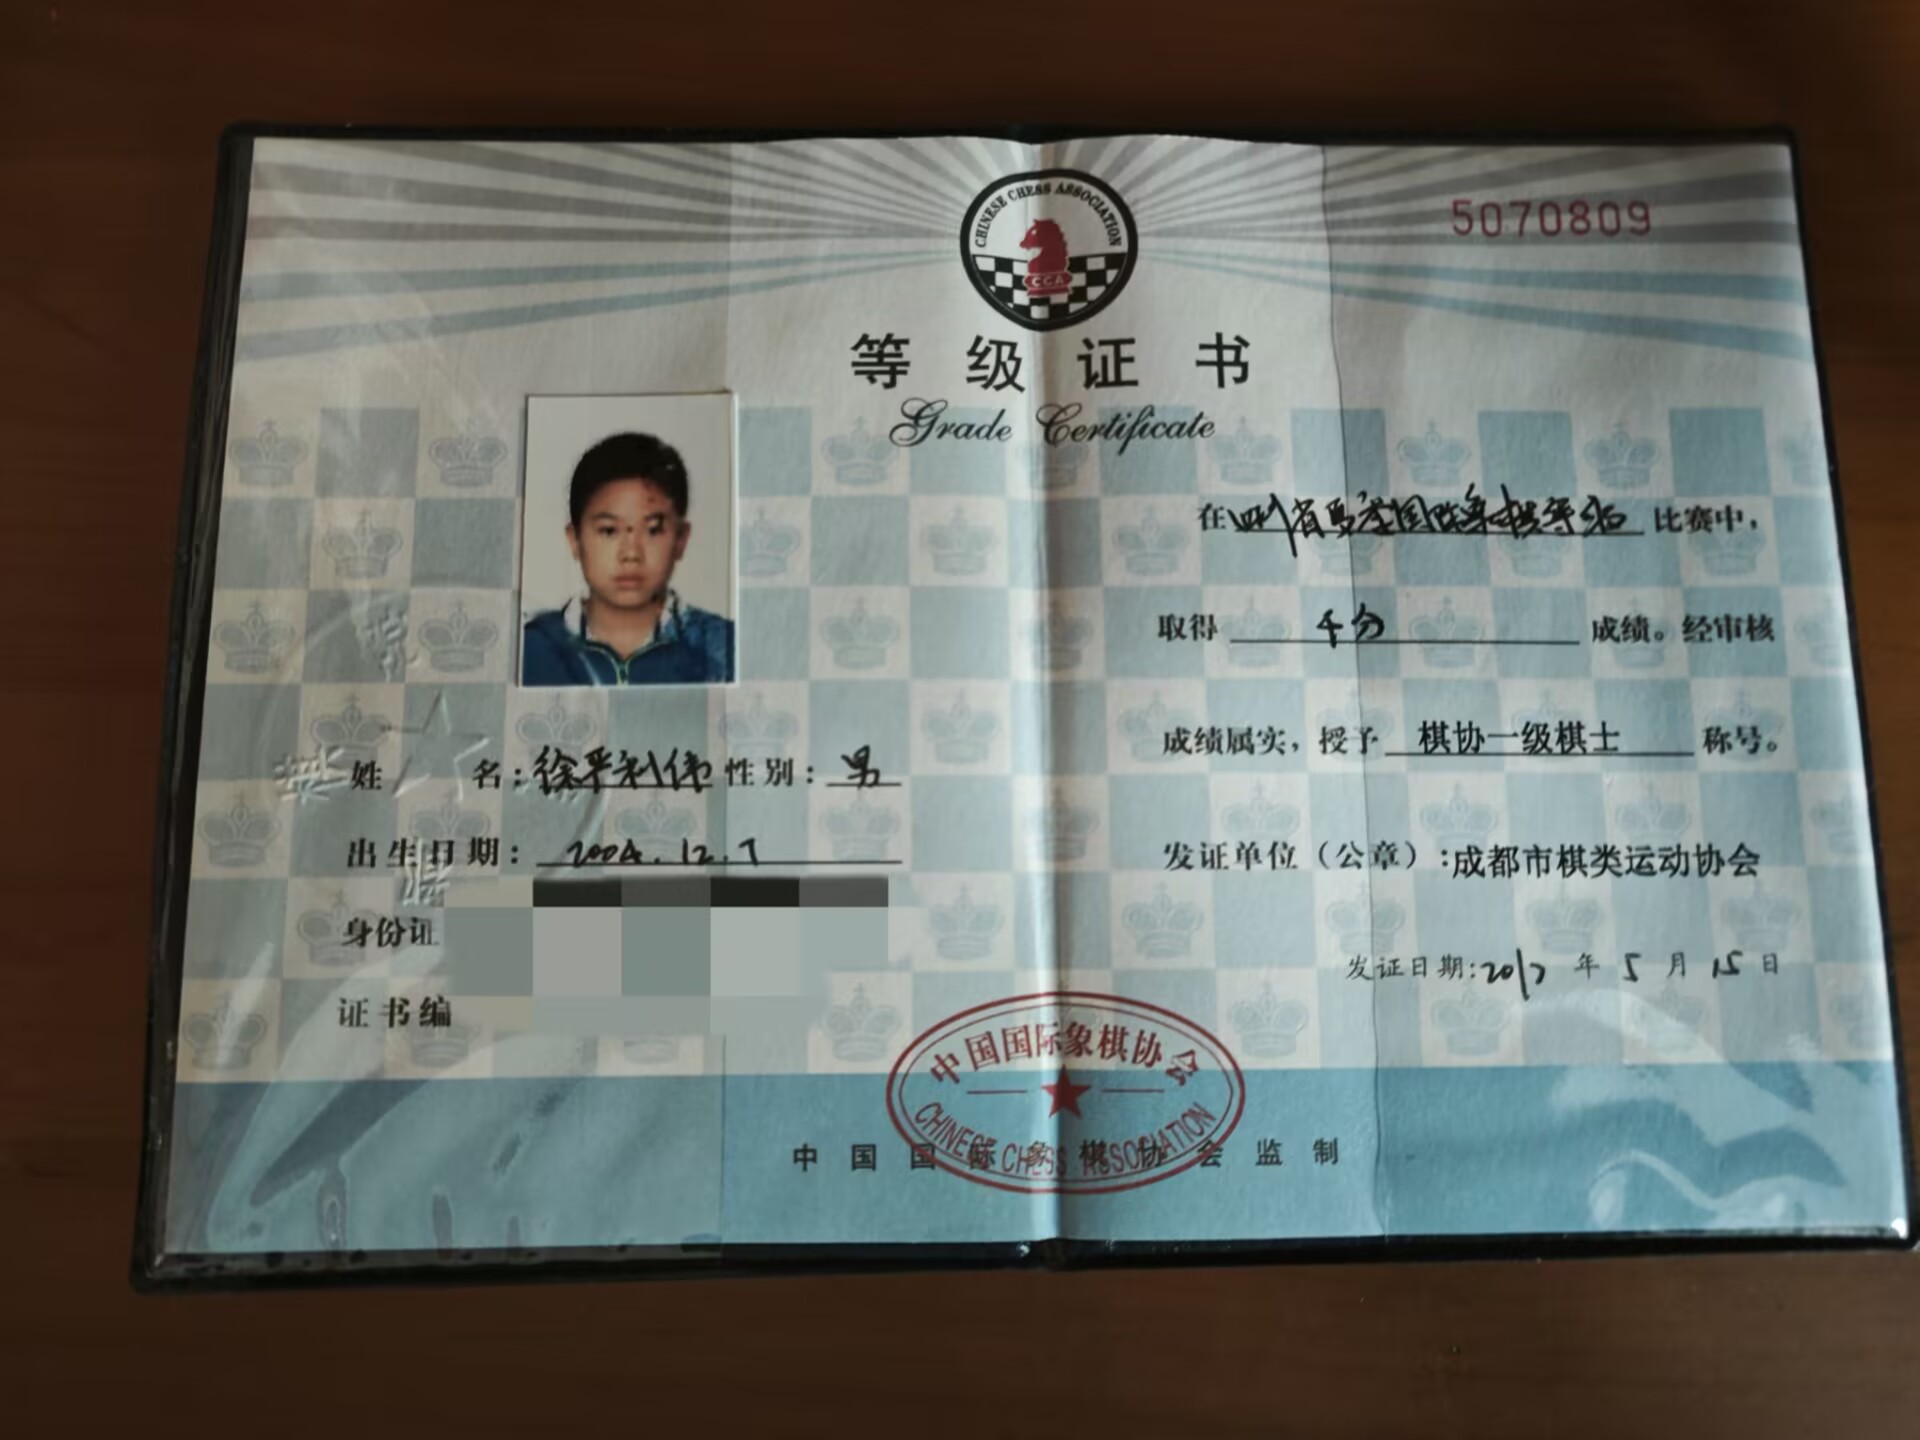 CHINESE CHESS ASSOCIATION
CCA
5070809
等级证书
Grade Certificate
姓名：徐平利伟 性别：男
出生日期：2004.12.7
身份证
证书编
在四川省 国际象棋等级 比赛中，
取得 4分 成绩。经审核
成绩属实，授予 棋协一级棋士 称号。
发证单位（公章）：成都市棋类运动协会
发证日期：2017年5月15日
中国国际象棋协会
CHINESE CHESS ASSOCIATION
中国国际象棋协会监制